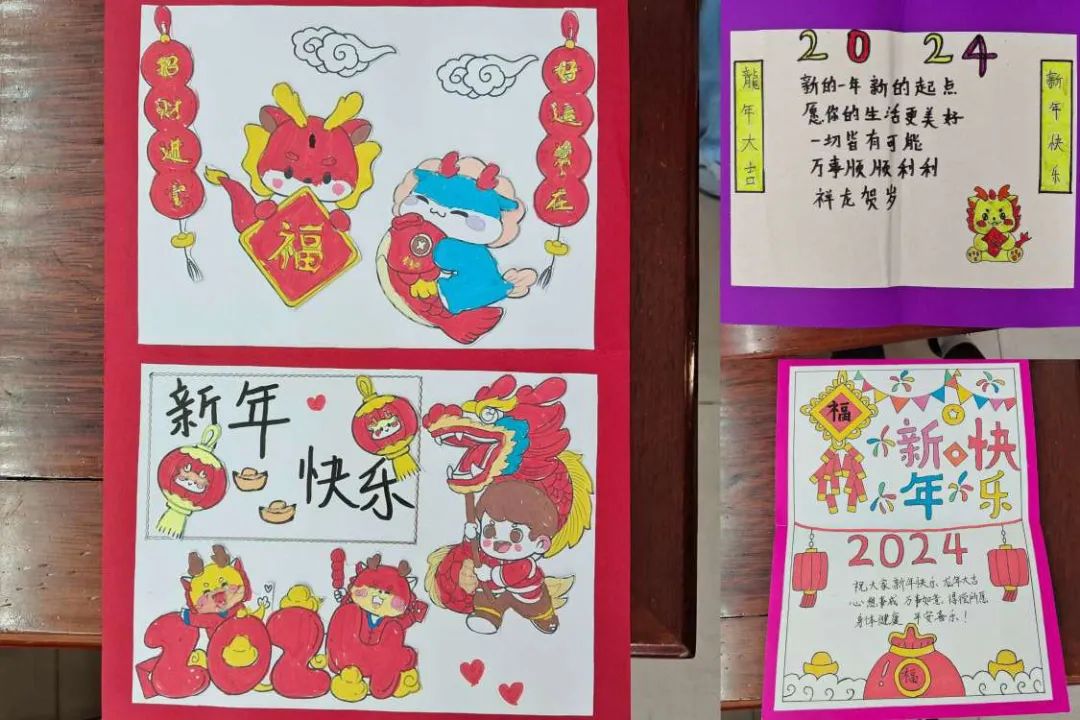 招财进宝
好运常在
福
新年
快乐
2024
2024
龍年大吉
新年快乐
新的一年 新的起点
愿你的生活更美好
一切皆有可能
万事顺顺利利
祥龙贺岁
福
新快
年乐
2024
祝大家新年快乐 龙年大吉
心想事成 万事如意 得偿所愿
身体健康 平安喜乐!
福